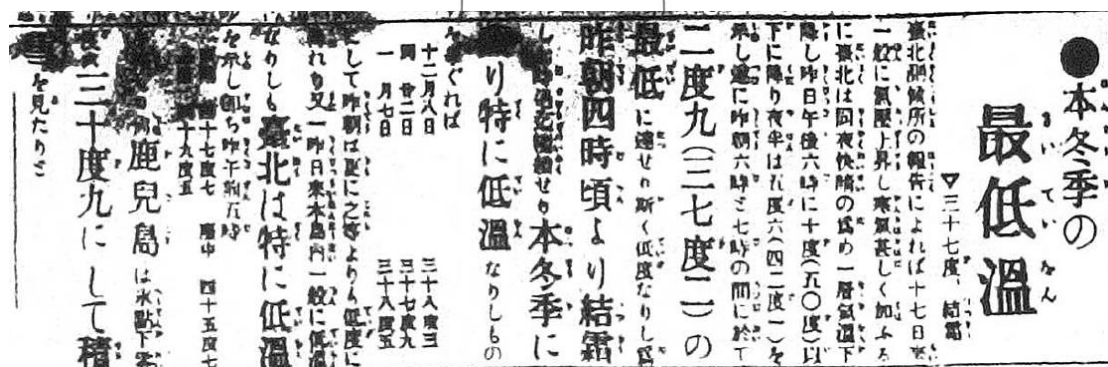 ●本冬季の
最低溫
▽三十七度、結霜
臺北測候所の報告によれば十七日來
一般に氣壓上昇し寒氣甚しく加ふる
に臺北は同夜快晴の爲め一層氣溫下
降し昨日午後六時に十度(五〇度)以
下に降り夜半は五度六(四二度一)を
示し遂に昨朝六時と七時の間に於て
二度九(三七度二)の
最低に達せり斯く低度なりし爲
昨朝四時頃より結霜
せり本冬季に
り特に低溫なりしもの
ぐれば
十二月八日 三十八度三
同 廿二日 三十七度九
一月七日 三十八度五
して昨朝は更に之等よりも低度に
れり又一昨日來本島內一般に低溫
なりしも臺北は特に低溫
を示し即ち昨午前五時
四十七度七 臺中 四十五度七
十九度五
鹿兒島は氷點下
三十度九にして積
を見たりと